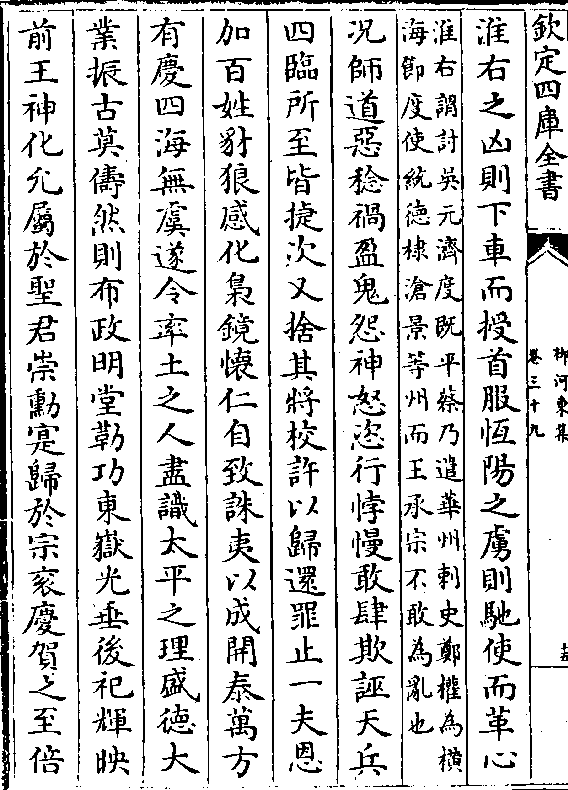 欽定四庫全書
柳河東集
卷三十九
淮右之凶則下車而授首服恆陽之虜則馳使而革心
淮右謂討吳元濟度既平蔡乃遣華州刺史鄭權為橫
海節度使統德棣滄景等州而王承宗不敢為亂也
况師道惡稔禍盈鬼怨神怒恣行悖慢敢肆欺誣天兵
四臨所至皆捷次又捨其將校許以歸還罪止一夫恩
加百姓豺狼感化梟鏡懷仁自致誅夷以成開泰萬方
有慶四海無虞遂令率土之人盡識太平之理盛德大
業振古莫儔然則布政明堂勒功東嶽光垂後祀輝映
前王神化允屬於聖君崇勳寔歸於宗衮慶賀之至倍